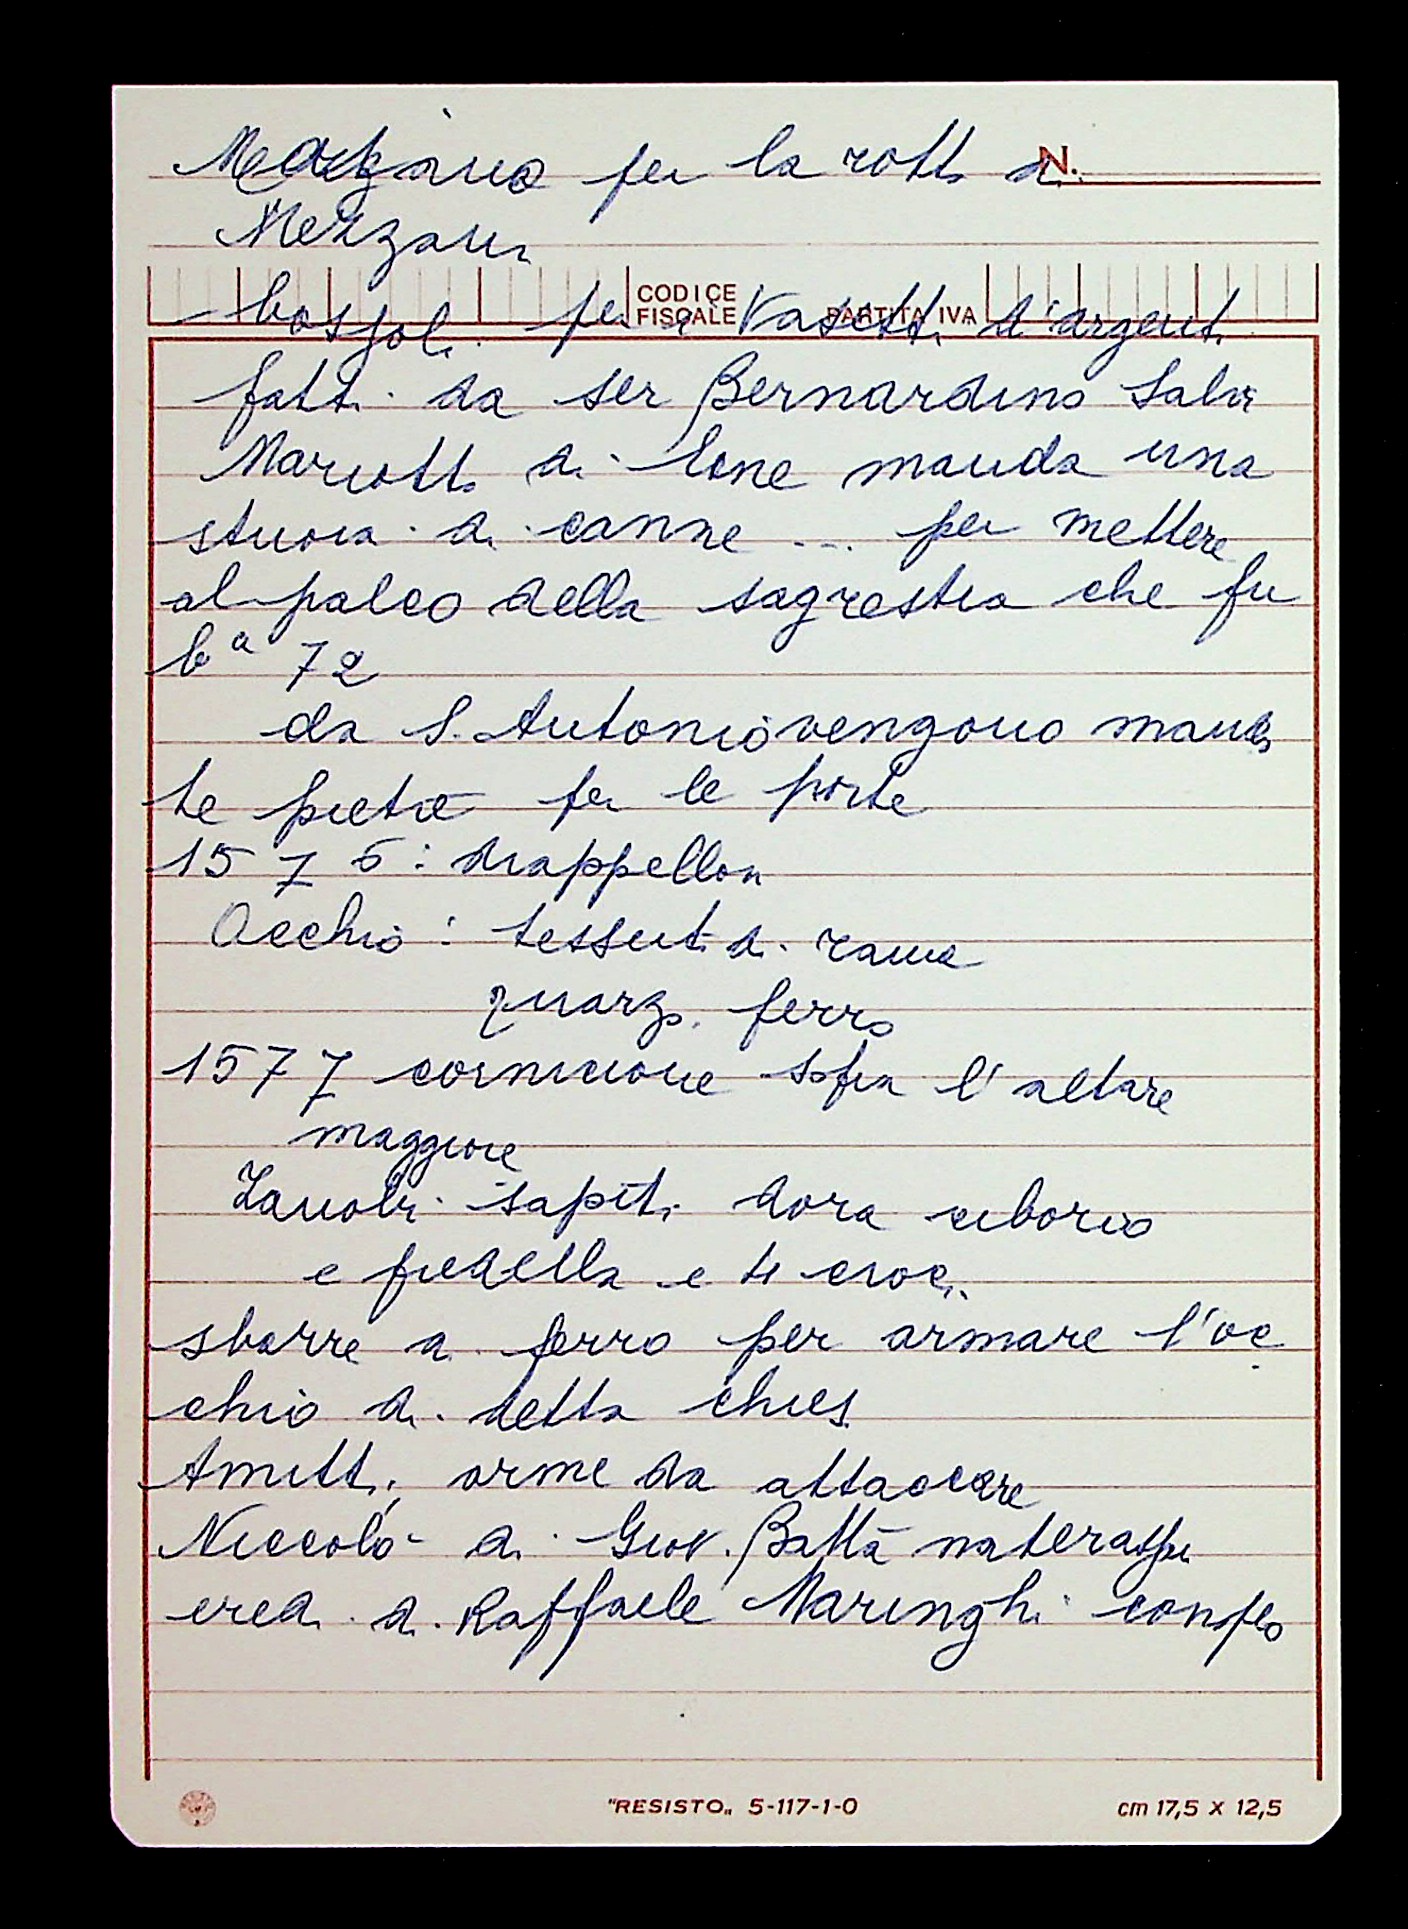 per la rotta di
N.
Mezzana
CODICE
FISCALE
PARTITA IVA
bossoli per Vasetti d'argent.
fatti da ser Bernardino Salvi
Mariotto di Lone manda una
stuoia di canne ... per mettere
al palco della sagrestia che fu
ba 72
da S. Antonio vengono manda
te pietre per le porte
1576: drappellon
Occhio: tessuti di rame
quarzo. ferro
1577 cornicione sopra l'altare
maggiore
Zanobi dora ciborio
e predella e 4 croci.
sbarre di ferro per armare l'oc
chio di detta chies
arme da attaccare
Niccolò di Giov. Batta
eredi di Raffaele Maringhi
"RESISTO" 5-117-1-0
cm 17,5 x 12,5